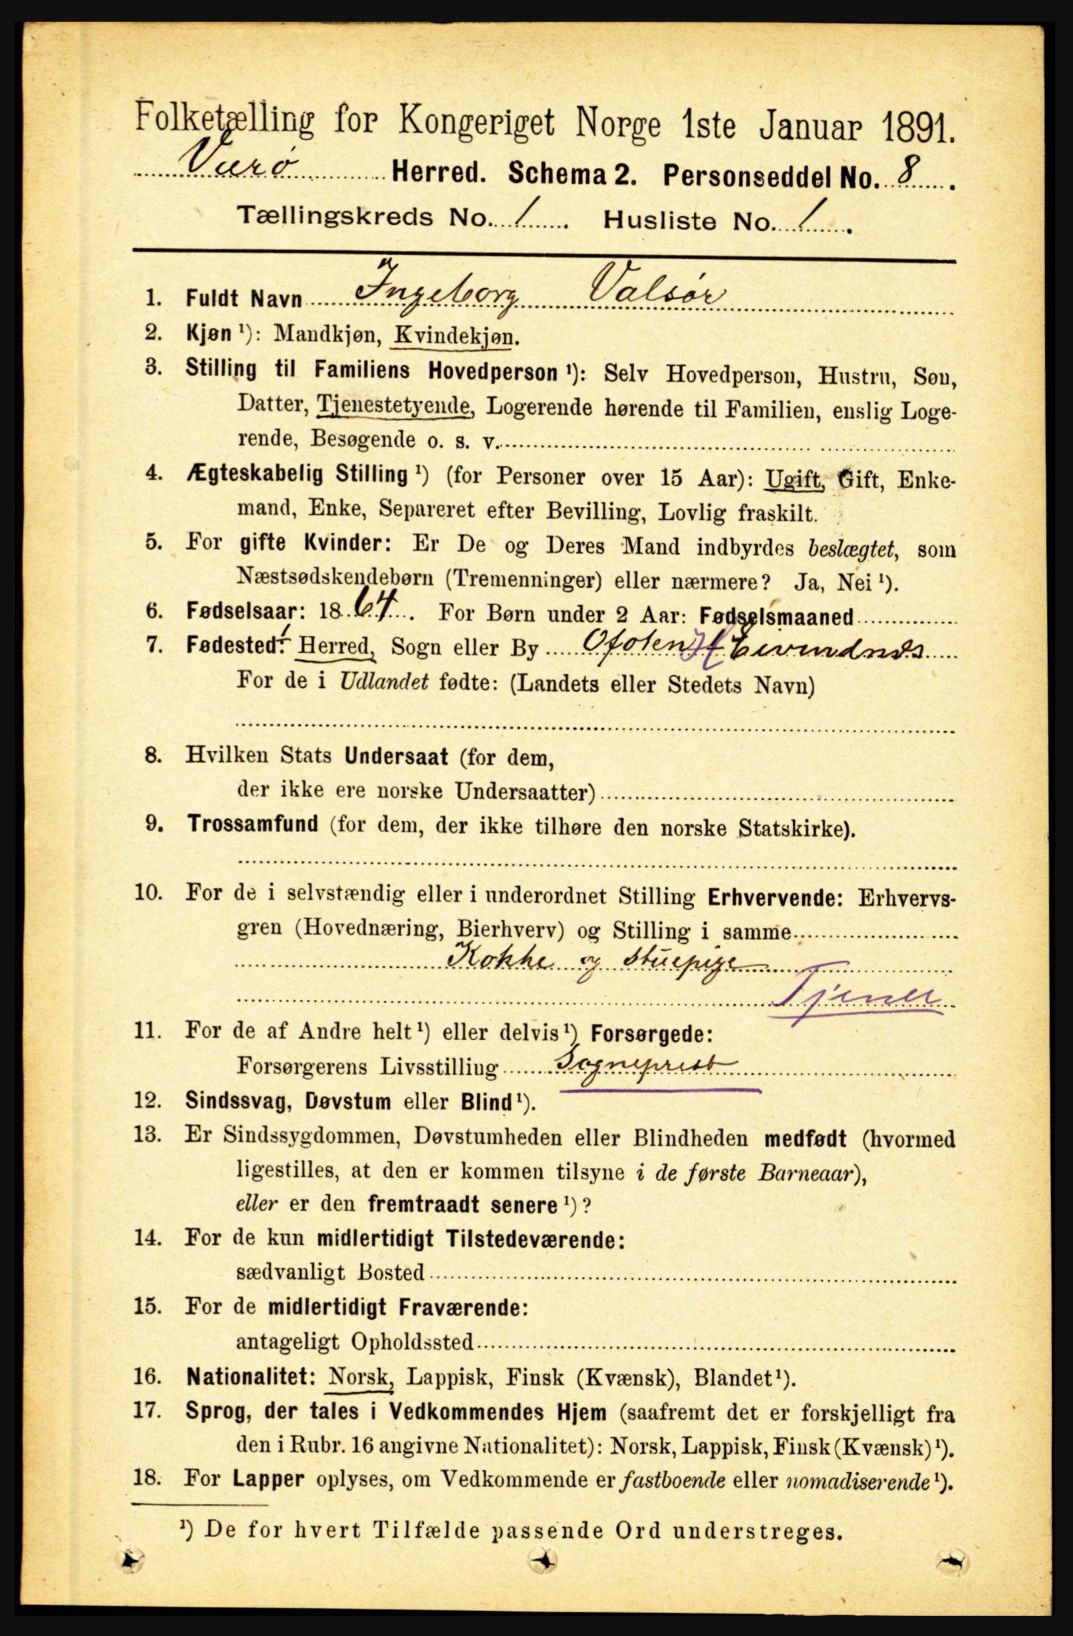 Folketælling for Kongeriget Norge 1ste Januar 1891.
Værø Herred. Schema 2. Personseddel No. 8.
Tællingskreds No. 1. Husliste No. 1.
1. Fuldt Navn Ingeborg Valsør
2. Kjøn ¹): Mandkjøn, Kvindekjøn.
3. Stilling til Familiens Hovedperson ¹): Selv Hovedperson, Hustru, Søn,
Datter, Tjenestetyende, Logerende hørende til Familien, enslig Loge-
rende, Besøgende o. s. v.
4. Ægteskabelig Stilling ¹) (for Personer over 15 Aar): Ugift, Gift, Enke-
mand, Enke, Separeret efter Bevilling, Lovlig fraskilt.
5. For gifte Kvinder: Er De og Deres Mand indbyrdes beslægtet, som
Næstsødskendebørn (Tremenninger) eller nærmere? Ja, Nei ¹).
6. Fødselsaar: 1864. For Børn under 2 Aar: Fødselsmaaned
7. Fødested: Herred, Sogn eller By Ofoten H Eivindnes
For de i Udlandet fødte: (Landets eller Stedets Navn)
8. Hvilken Stats Undersaat (for dem,
der ikke ere norske Undersaatter)
9. Trossamfund (for dem, der ikke tilhøre den norske Statskirke).
10. For de i selvstændig eller i underordnet Stilling Erhvervende: Erhvervs-
gren (Hovednæring, Bierhverv) og Stilling i samme
Kokke og stuepige
Tjener
11. For de af Andre helt ¹) eller delvis ¹) Forsørgede:
Forsørgerens Livsstilling Sogneprest
12. Sindssvag, Døvstum eller Blind ¹).
13. Er Sindssygdommen, Døvstumheden eller Blindheden medfødt (hvormed
ligestilles, at den er kommen tilsyne i de første Barneaar),
eller er den fremtraadt senere ¹)?
14. For de kun midlertidigt Tilstedeværende:
sædvanligt Bosted
15. For de midlertidigt Fraværende:
antageligt Opholdssted
16. Nationalitet: Norsk, Lappisk, Finsk (Kvænsk), Blandet ¹).
17. Sprog, der tales i Vedkommendes Hjem (saafremt det er forskjelligt fra
den i Rubr. 16 angivne Nationalitet): Norsk, Lappisk, Finsk (Kvænsk) ¹).
18. For Lapper oplyses, om Vedkommende er fastboende eller nomadiserende ¹).
¹) De for hvert Tilfælde passende Ord understreges.